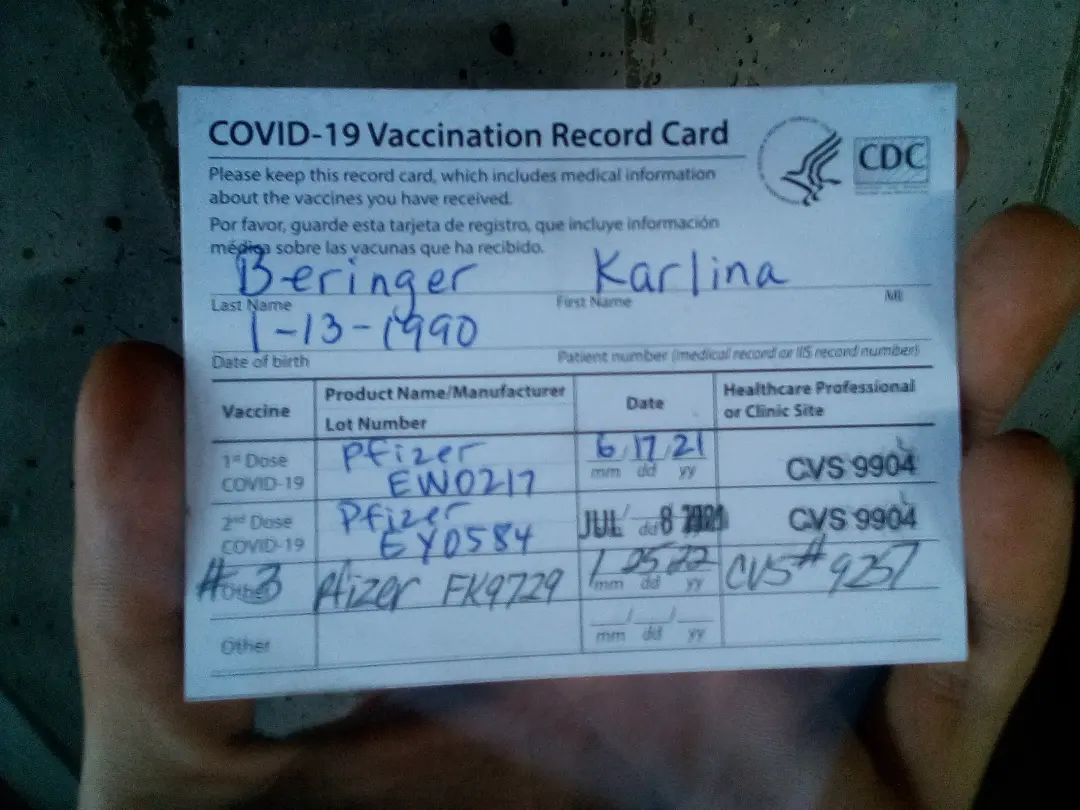 COVID-19 Vaccination Record Card
CDC
Please keep this record card, which includes medical information
about the vaccines you have received.
Por favor, guarde esta tarjeta de registro, que incluye información
médica sobre las vacunas que ha recibido.
Beringer Karlina
Last Name First Name MI
1-13-1990
Date of birth Patient number (medical record or IIS record number)
Vaccine
Product Name/Manufacturer
Lot Number
Date
Healthcare Professional
or Clinic Site
1st Dose
COVID-19
Pfizer
EW0217
6/17/21
mm dd yy
CVS 9904
2nd Dose
COVID-19
Pfizer
EY0584
JUL 8 2021
dd
CVS 9904
#3
Other
Pfizer FK9729
1/25/22
mm dd yy
CVS# 9257
Other
/ /
mm dd yy